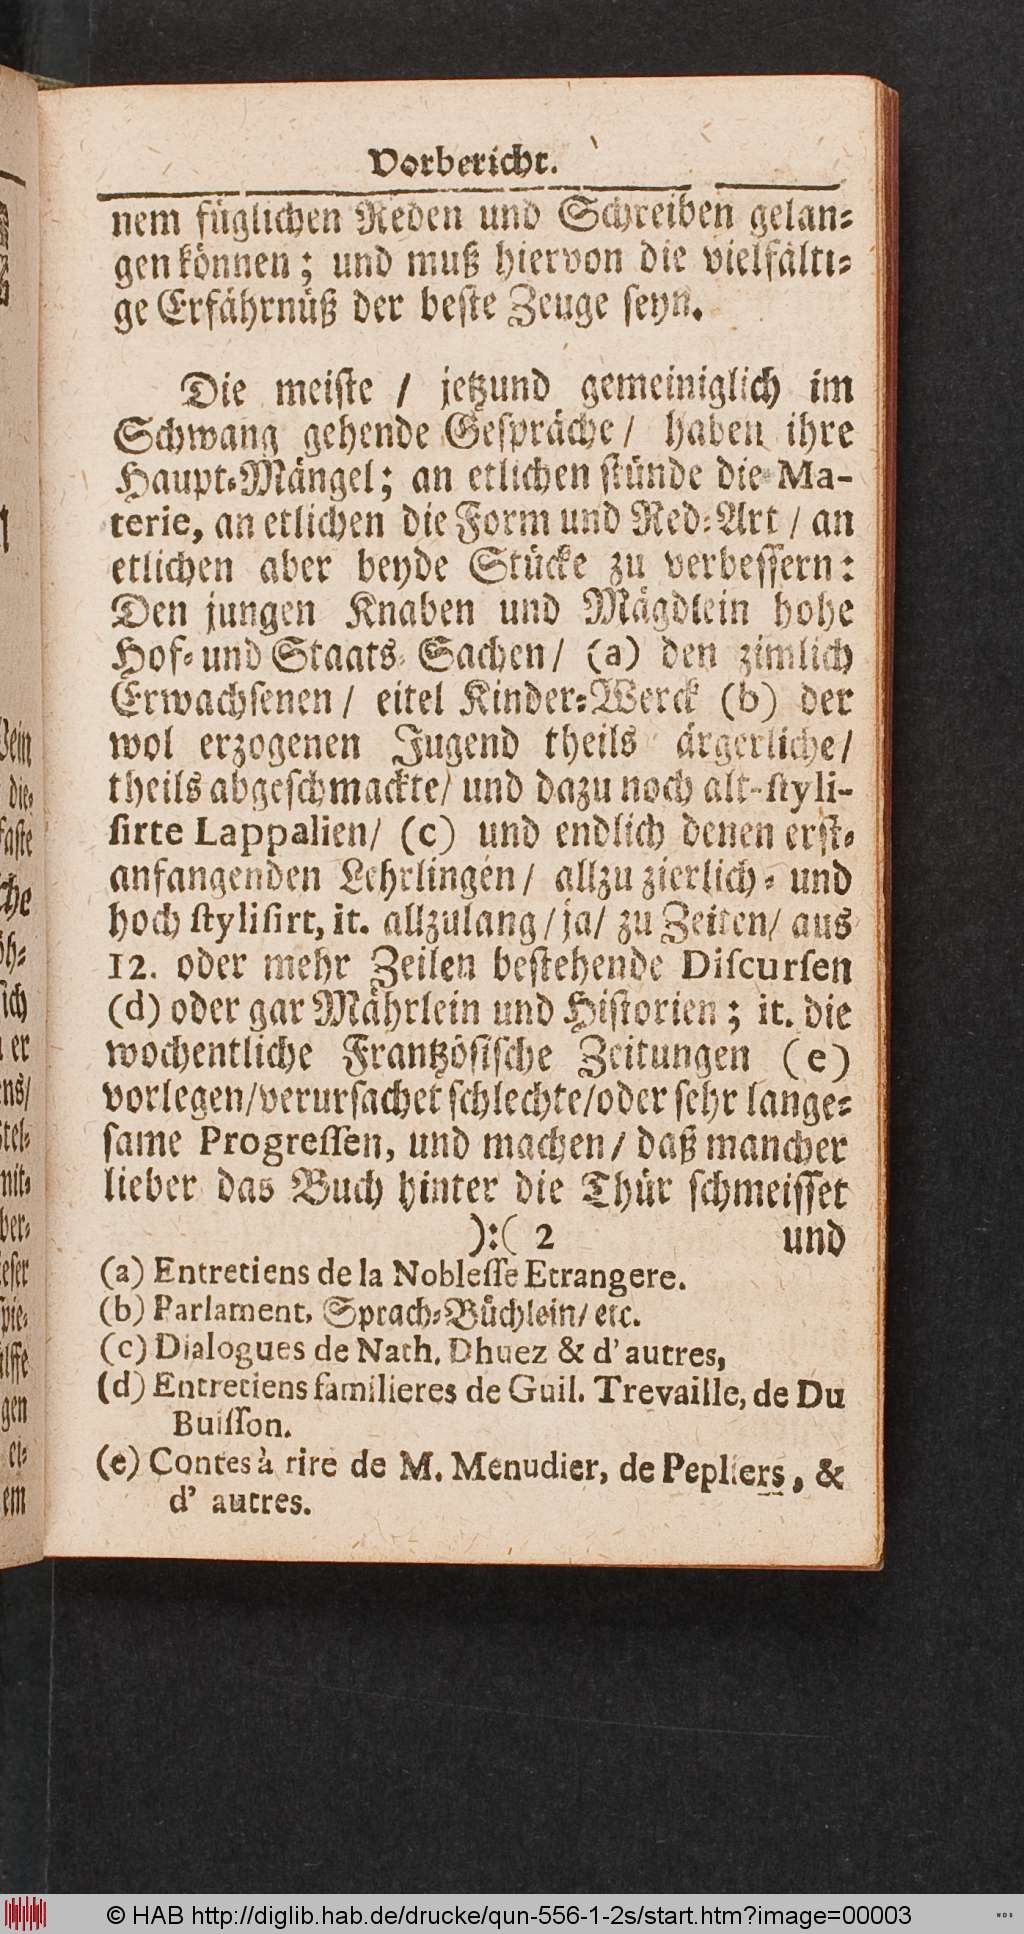 Vorbericht.
nem füglichen Reden und Schreiben gelan⸗
gen können; und muß hiervon die vielfälti⸗
ge Erfährnüß der beste Zeuge seyn.
Die meiste / jetzund gemeiniglich im
Schwang gehende Gespräche / haben ihre
Haupt⸗Mängel; an etlichen stünde die Ma-
terie, an etlichen die Form und Red⸗Art / an
etlichen aber beyde Stücke zu verbessern:
Den jungen Knaben und Mägdlein hohe
Hof⸗ und Staats⸗Sachen / (a) den zimlich
Erwachsenen / eitel Kinder⸗Werck (b) der
wol erzogenen Jugend theils ärgerliche /
theils abgeschmackte / und dazu noch alt-styli-
sirte Lappalien / (c) und endlich denen erst⸗
anfangenden Lehrlingen / allzu zierlich⸗ und
hoch stylisirt, it. allzulang / ja / zu Zeiten / aus
12. oder mehr Zeilen bestehende Discursen
(d) oder gar Mährlein und Historien; it. die
wochentliche Frantzösische Zeitungen (e)
vorlegen / verursachet schlechte / oder sehr lange⸗
same Progressen, und machen / daß mancher
lieber das Buch hinter die Thür schmeisset
):( 2 und
(a) Entretiens de la Noblesse Etrangere.
(b) Parlament, Sprach⸗Büchlein / etc.
(c) Dialogues de Nath. Dhuez & d' autres,
(d) Entretiens familieres de Guil. Trevaille, de Du
Buisson.
(e) Contes à rire de M. Menudier, de Pepliers, &
d' autres.
© HAB http://diglib.hab.de/drucke/qun-556-1-2s/start.htm?image=00003